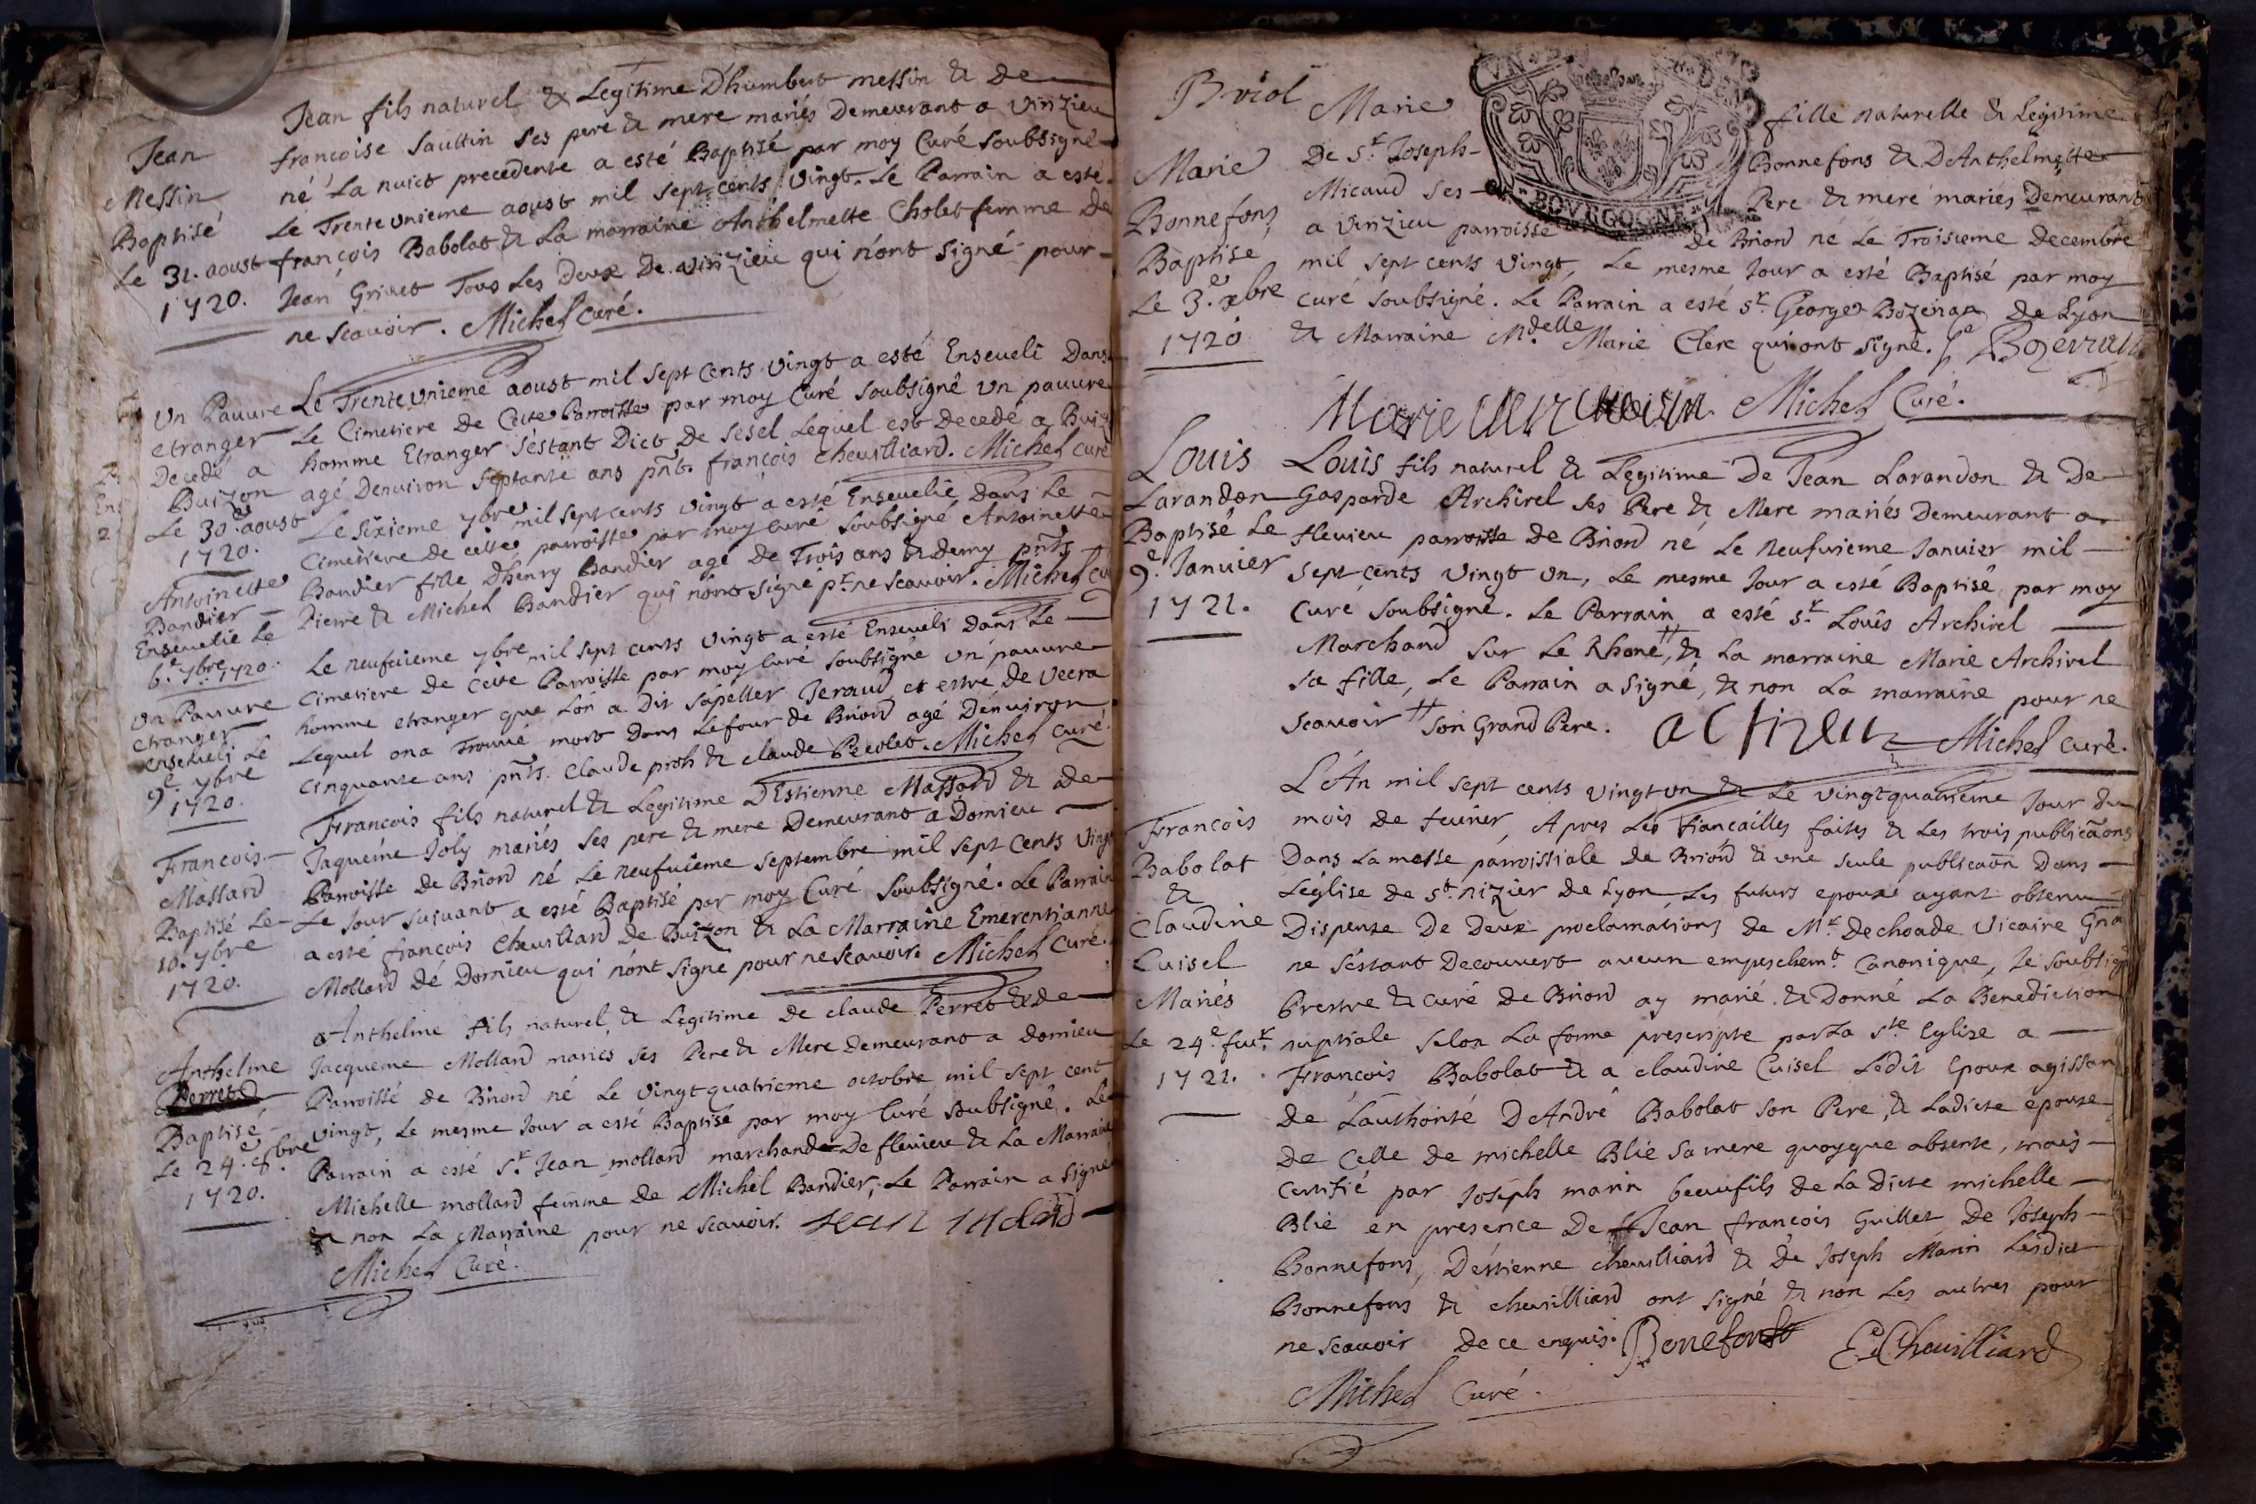 Jean
Messin
Baptisé
Le 31. aoust
1720.
Jean fils naturel & Legitime D'humbert messin & de
francoise Saultin ses pere & mere mariés Demeurant a Virizieu
né La nuict precedente a esté Baptisé par moy Curé soubssigné
Le Trente unieme aoust mil sept cents vingt. Le Parrain a esté
françois Babolat & La marraine Anthelmette Cholet femme de
Jean Grivet Tous Les Deux de virizieu qui n'ont signé pour
ne scavoir. Michel curé.
Un Pauvre
etranger
Decedé a
Buizon
Le 30.e aoust
1720.
Le Trente unieme aoust mil sept cents vingt a esté Enseveli Dans
Le Cimetiere de Cette Parroisse par moy Curé soubsigné un pauvre
homme Etranger s'estant Dict de Sesel Lequel est decedé a Buiz
agé Denviron septante ans pnt. françois chevilliard. Michel curé
Antoinette
Bandier
Ensevelie Le
6.e 7bre 1720.
Le sixieme 7bre mil sept cents vingt a esté Ensevelie dans Le
Cimetiere de cette parroisse par moy Curé soubsigné Antoinette
Bandier fille D'henry Bandier agé de Trois ans & demy pnts
Pierre & Michel Bandier qui n'ont signe pr. ne scavoir. Michel cu
Un Pauvre
etranger
enseveli Le
9.e 7bre
1720.
Le neufvieme 7bre mil sept cents vingt a esté Enseveli dans Le
Cimetiere de Cette Parroisse par moy Curé soubsigné un pauvre
homme etranger que Lon a dit sapeller Jeraud et estre de Vecra
Lequel on a Trouvé mort dans Le four de Briord agé Denviron
Cinquante ans pnts. Claude proh & claude Perolat. Michel Curé.
Francois
Massard
Baptisé Le
10. 7bre
1720.
Francois fils naturel & Legitime D'Estienne Massard & de
Jaqueme Joly mariés ses pere & mere Demeurant a Dornieu
Parroisse de Briord né Le neufvieme septembre mil sept cents vingt
Le Jour suivant a esté Baptisé par moy Curé soubsigné. Le Parrain
a esté françois Chevilliard de Buizon & La Marraine Emerentianne
Mollard de Dornieu qui n'ont signé pour ne scavoir. Michel Curé.
Anthelme
Perret
Baptisé
Le 24.e 8bre
1720.
Anthelme fils naturel & Legitime de claude Perret & de
Jacqueme Mollard mariés ses Pere & Mere demeurant a dornieu
Parroisse de Briord né Le vingtquatrieme octobre mil sept cent
vingt, Le mesme Jour a esté Baptisé par moy Curé soubsigné. Le
Parrain a esté sr. Jean mollard marchand De flevieu & La Marraine
Michelle mollard femme de Michel Bandier, Le Parrain a signé
& non La Marraine pour ne scavoir.
Michel Curé.
Briol
BOURGOGNE
Marie
Bonnefons
Baptise
Le 3.e xbre
1720
Marie fille naturelle & Legitime
De Sr. Joseph Bonnefons & D'Anthelmette
Micaud ses Pere & mere mariés Demeurant
a virizieu parroisse de Briord né Le Troisieme Decembre
mil sept cents vingt, Le mesme Jour a esté Baptisé par moy
curé soubsigné. Le Parrain a esté sr. George Bozenan de Lyon
& Marraine Mdelle. Marie Clerc qui ont signé.
Michel Curé.
Louis
Larandon
Baptisé Le
9.e Janvier
1721.
Louis fils naturel & Legitime De Jean Larandon & De
Gasparde Archirel ses Pere & Mere mariés Demeurant a
flevieu parroisse de Briord né Le neufvieme Janvier mil
sept cents vingt un, Le mesme Jour a esté Baptisé par moy
Curé soubsigné. Le Parrain a esté sr. Louis Archirel
Marchand sur Le Rhone, # & La marraine Marie Archirel
sa fille, Le Parrain a signé, & non La marraine pour ne
scavoir # son Grand Pere. Michel curé.
Francois
Babolat
&
Claudine
Cuisel
Mariés
Le 24.e fevr.
1721.
L'An mil sept cents vingt un & Le vingtquatrieme Jour du
mois de fevrier, Apres Les Fiancailles faites & Les trois publicaons
Dans La messe parroissiale de Briord & une seule publicaon Dans
L'église de st. nizier de Lyon, Les futurs epoux ayant obtenu
Dispense De Deux proclamations de Mr. Dechoade Vicaire Gñal
ne s'estant Decouvert aucun empeschemt. Canonique, Je soubsigé
Prestre & Curé de Briord ay marié & Donné La Benediction
nuptiale selon La forme prescripte par La ste Eglise a
Francois Babolat & a claudine Cuisel Ledit Epoux agissant
de L'authorité D'André Babolat son Pere, & Ladicte epouse
De Celle de michelle Blié sa mere quoyque absente, mais
certifié par Joseph marin beaufils de La dicte michelle
Blié en presence De Jean françois Guillet De Joseph
Bonnefons, D'estienne chevilliard & De Joseph Marin Lesdict
Bonnefons & chevilliard ont signé & non Les autres pour
ne scavoir de ce enquis. Bonefons E. Chevilliard
Michel Curé.